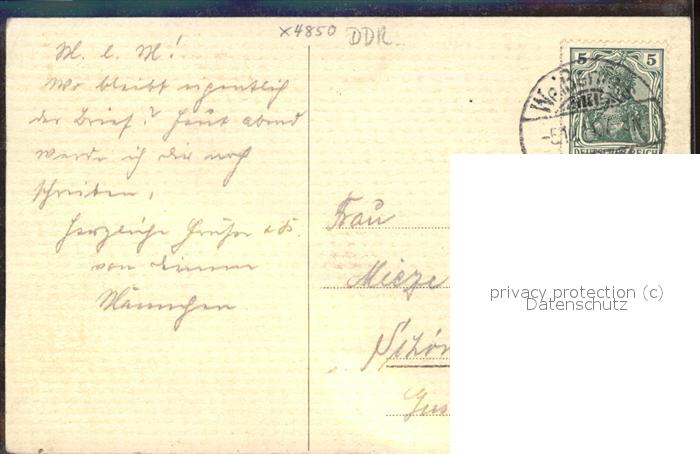 x4850 DDR
M. l. M!
Wo bleibt eigentlich
der Brief? Heut abend
werde ich dir noch
schreiben.
Herzliche Grüße u. K.
von deinem
Männchen
5 5
DEUTSCHES REICH
Frau
Mieze
Schön
privacy protection (c)
Datenschutz